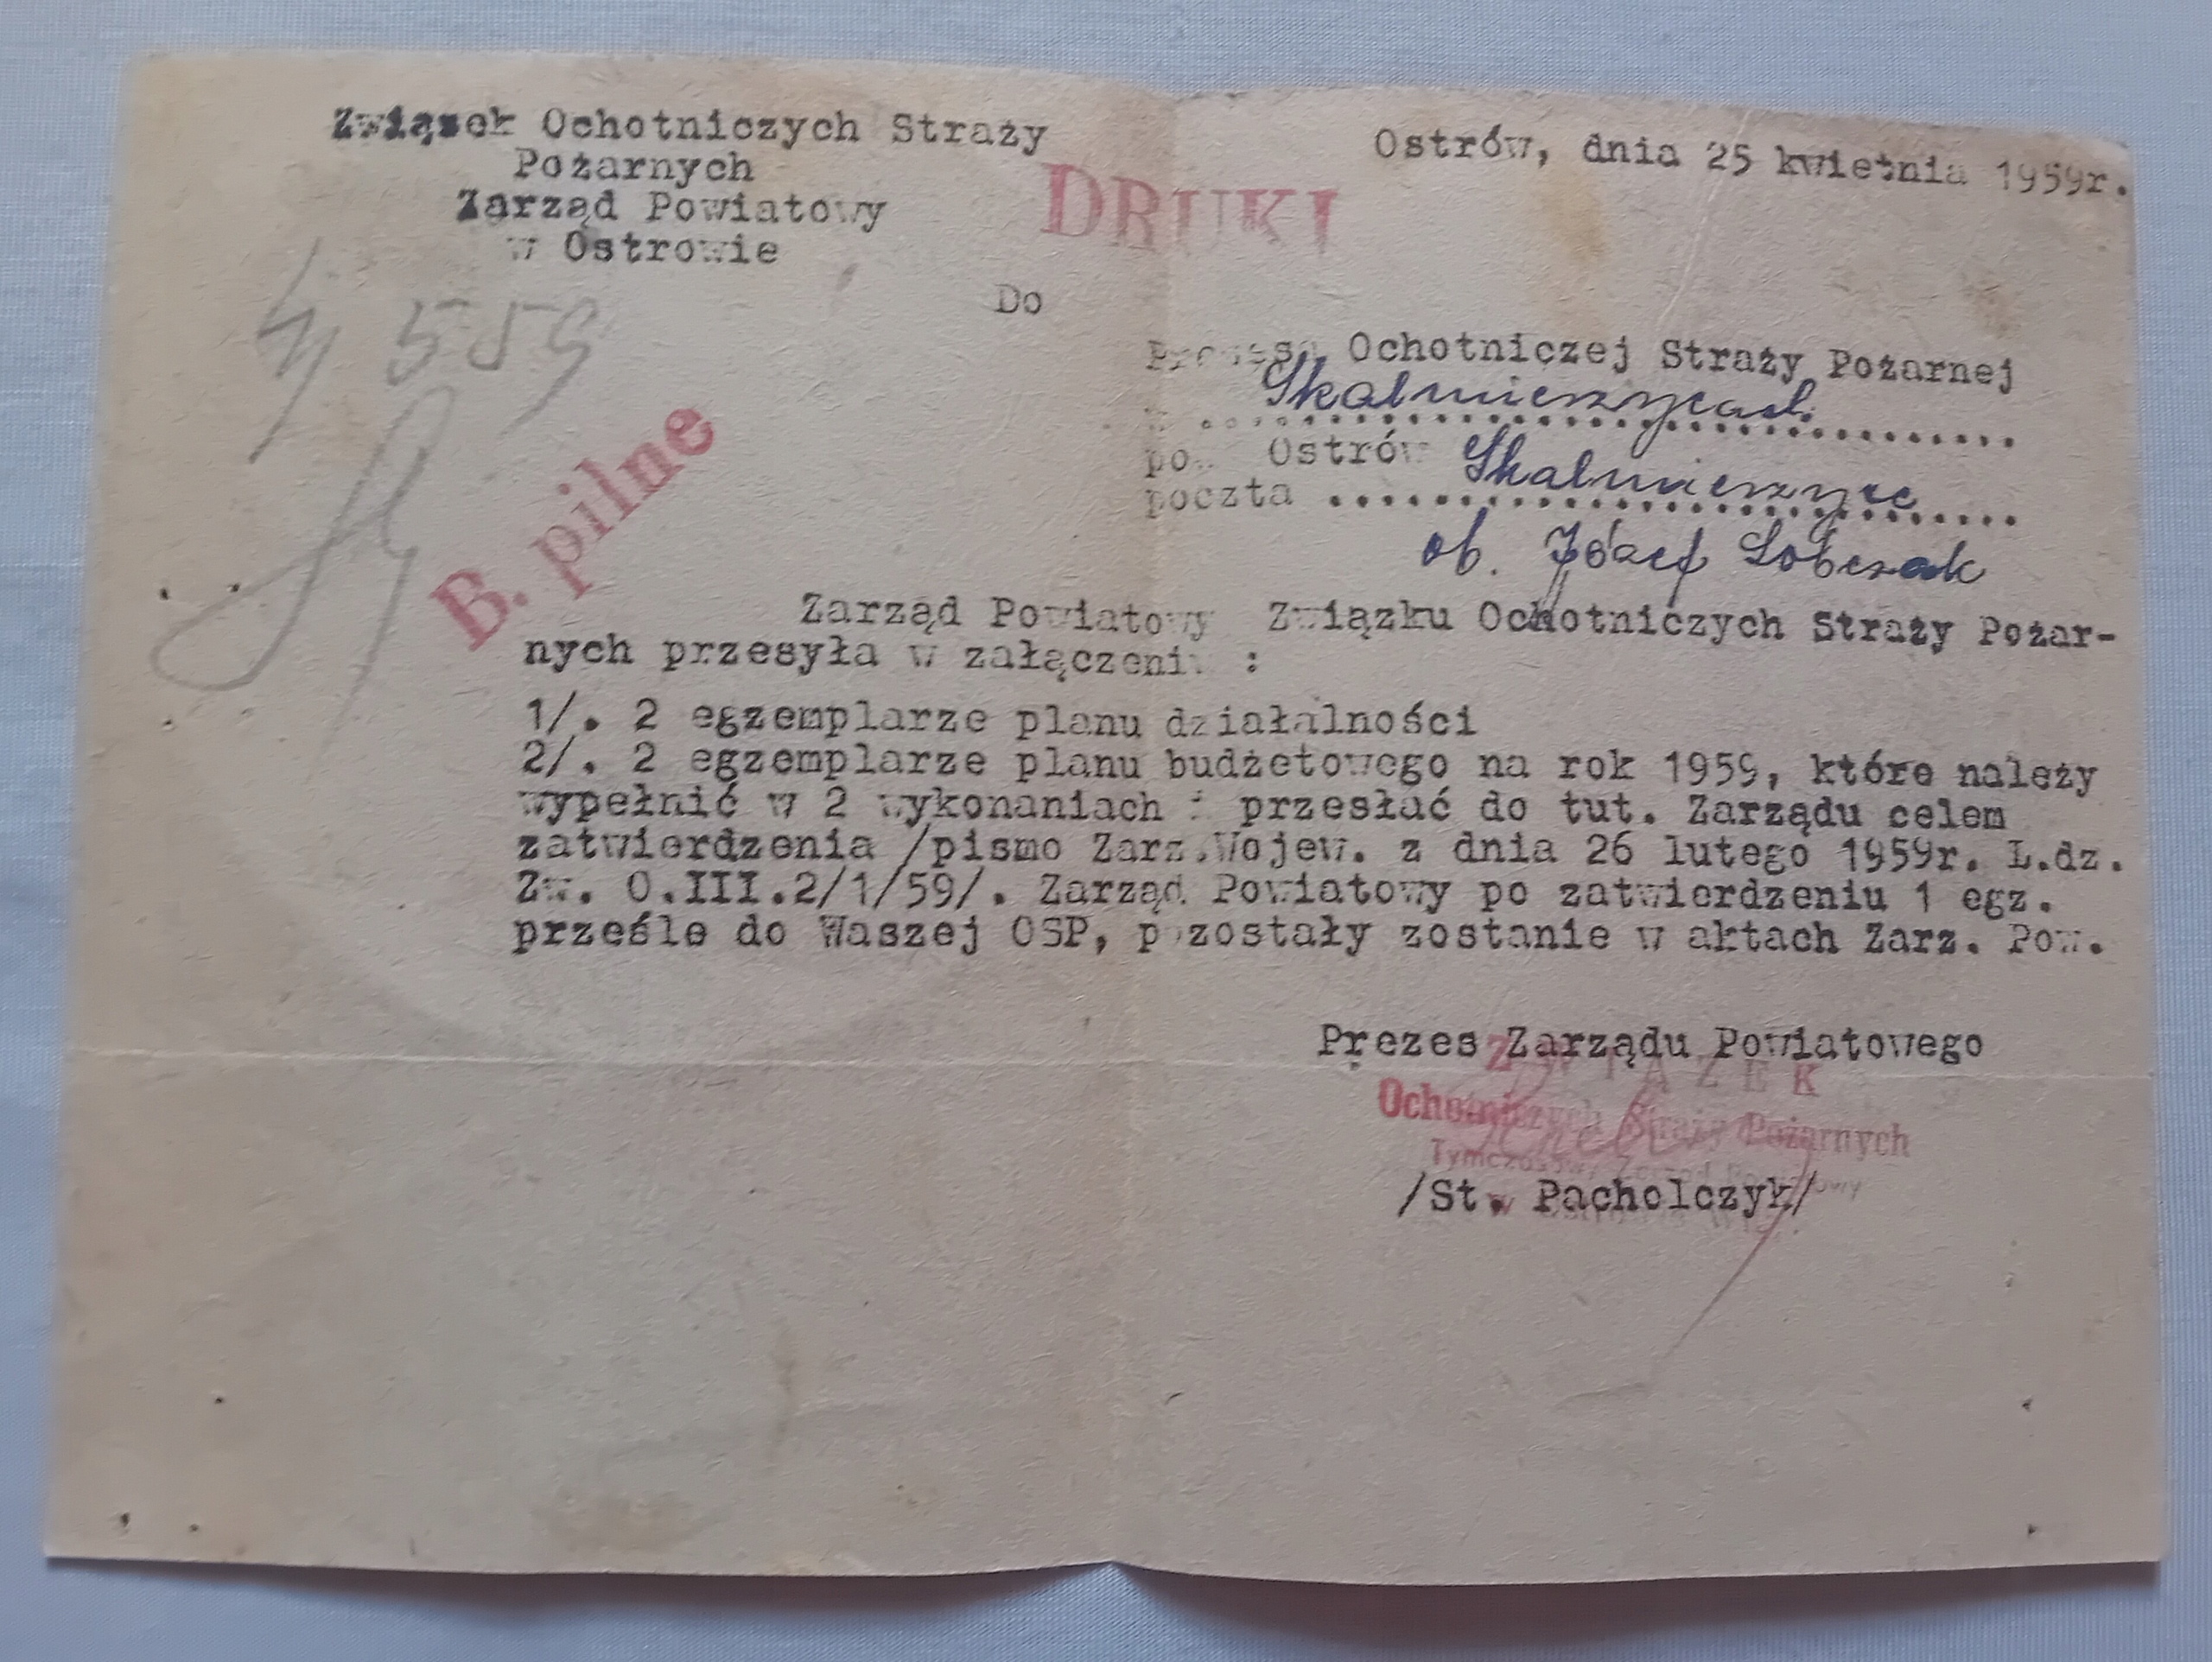 Związek Ochotniczych Straży
Pożarnych
Zarząd Powiatowy
w Ostrowie
Ostrów, dnia 25 kwietnia 1959r.
DRUKI
Do
Prezesa Ochotniczej Straży Pożarnej
w Skalmierzycach
pow. Ostrów
poczta Skalmierzyce
ob. Józef Sobczak
B. pilne
Zarząd Powiatowy Związku Ochotniczych Straży Pożar-
nych przesyła w załączeniu :
1/. 2 egzemplarze planu działalności
2/. 2 egzemplarze planu budżetowego na rok 1959, które należy
wypełnić w 2 wykonaniach i przesłać do tut. Zarządu celem
zatwierdzenia /pismo Zarz.Wojew. z dnia 26 lutego 1959r. L.dz.
Zw. O.III.2/1/59/. Zarząd Powiatowy po zatwierdzeniu 1 egz.
prześle do Waszej OSP, pozostały zostanie w aktach Zarz. Pow.
Prezes Zarządu Powiatowego
ZWIĄZEK
Ochotniczych Straży Pożarnych
Tymczasowy Zarząd Powiatowy
/St. Pacholczyk/